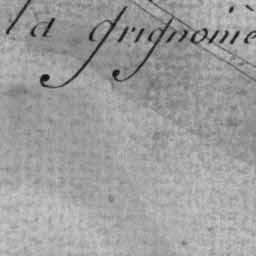 la grignoniè